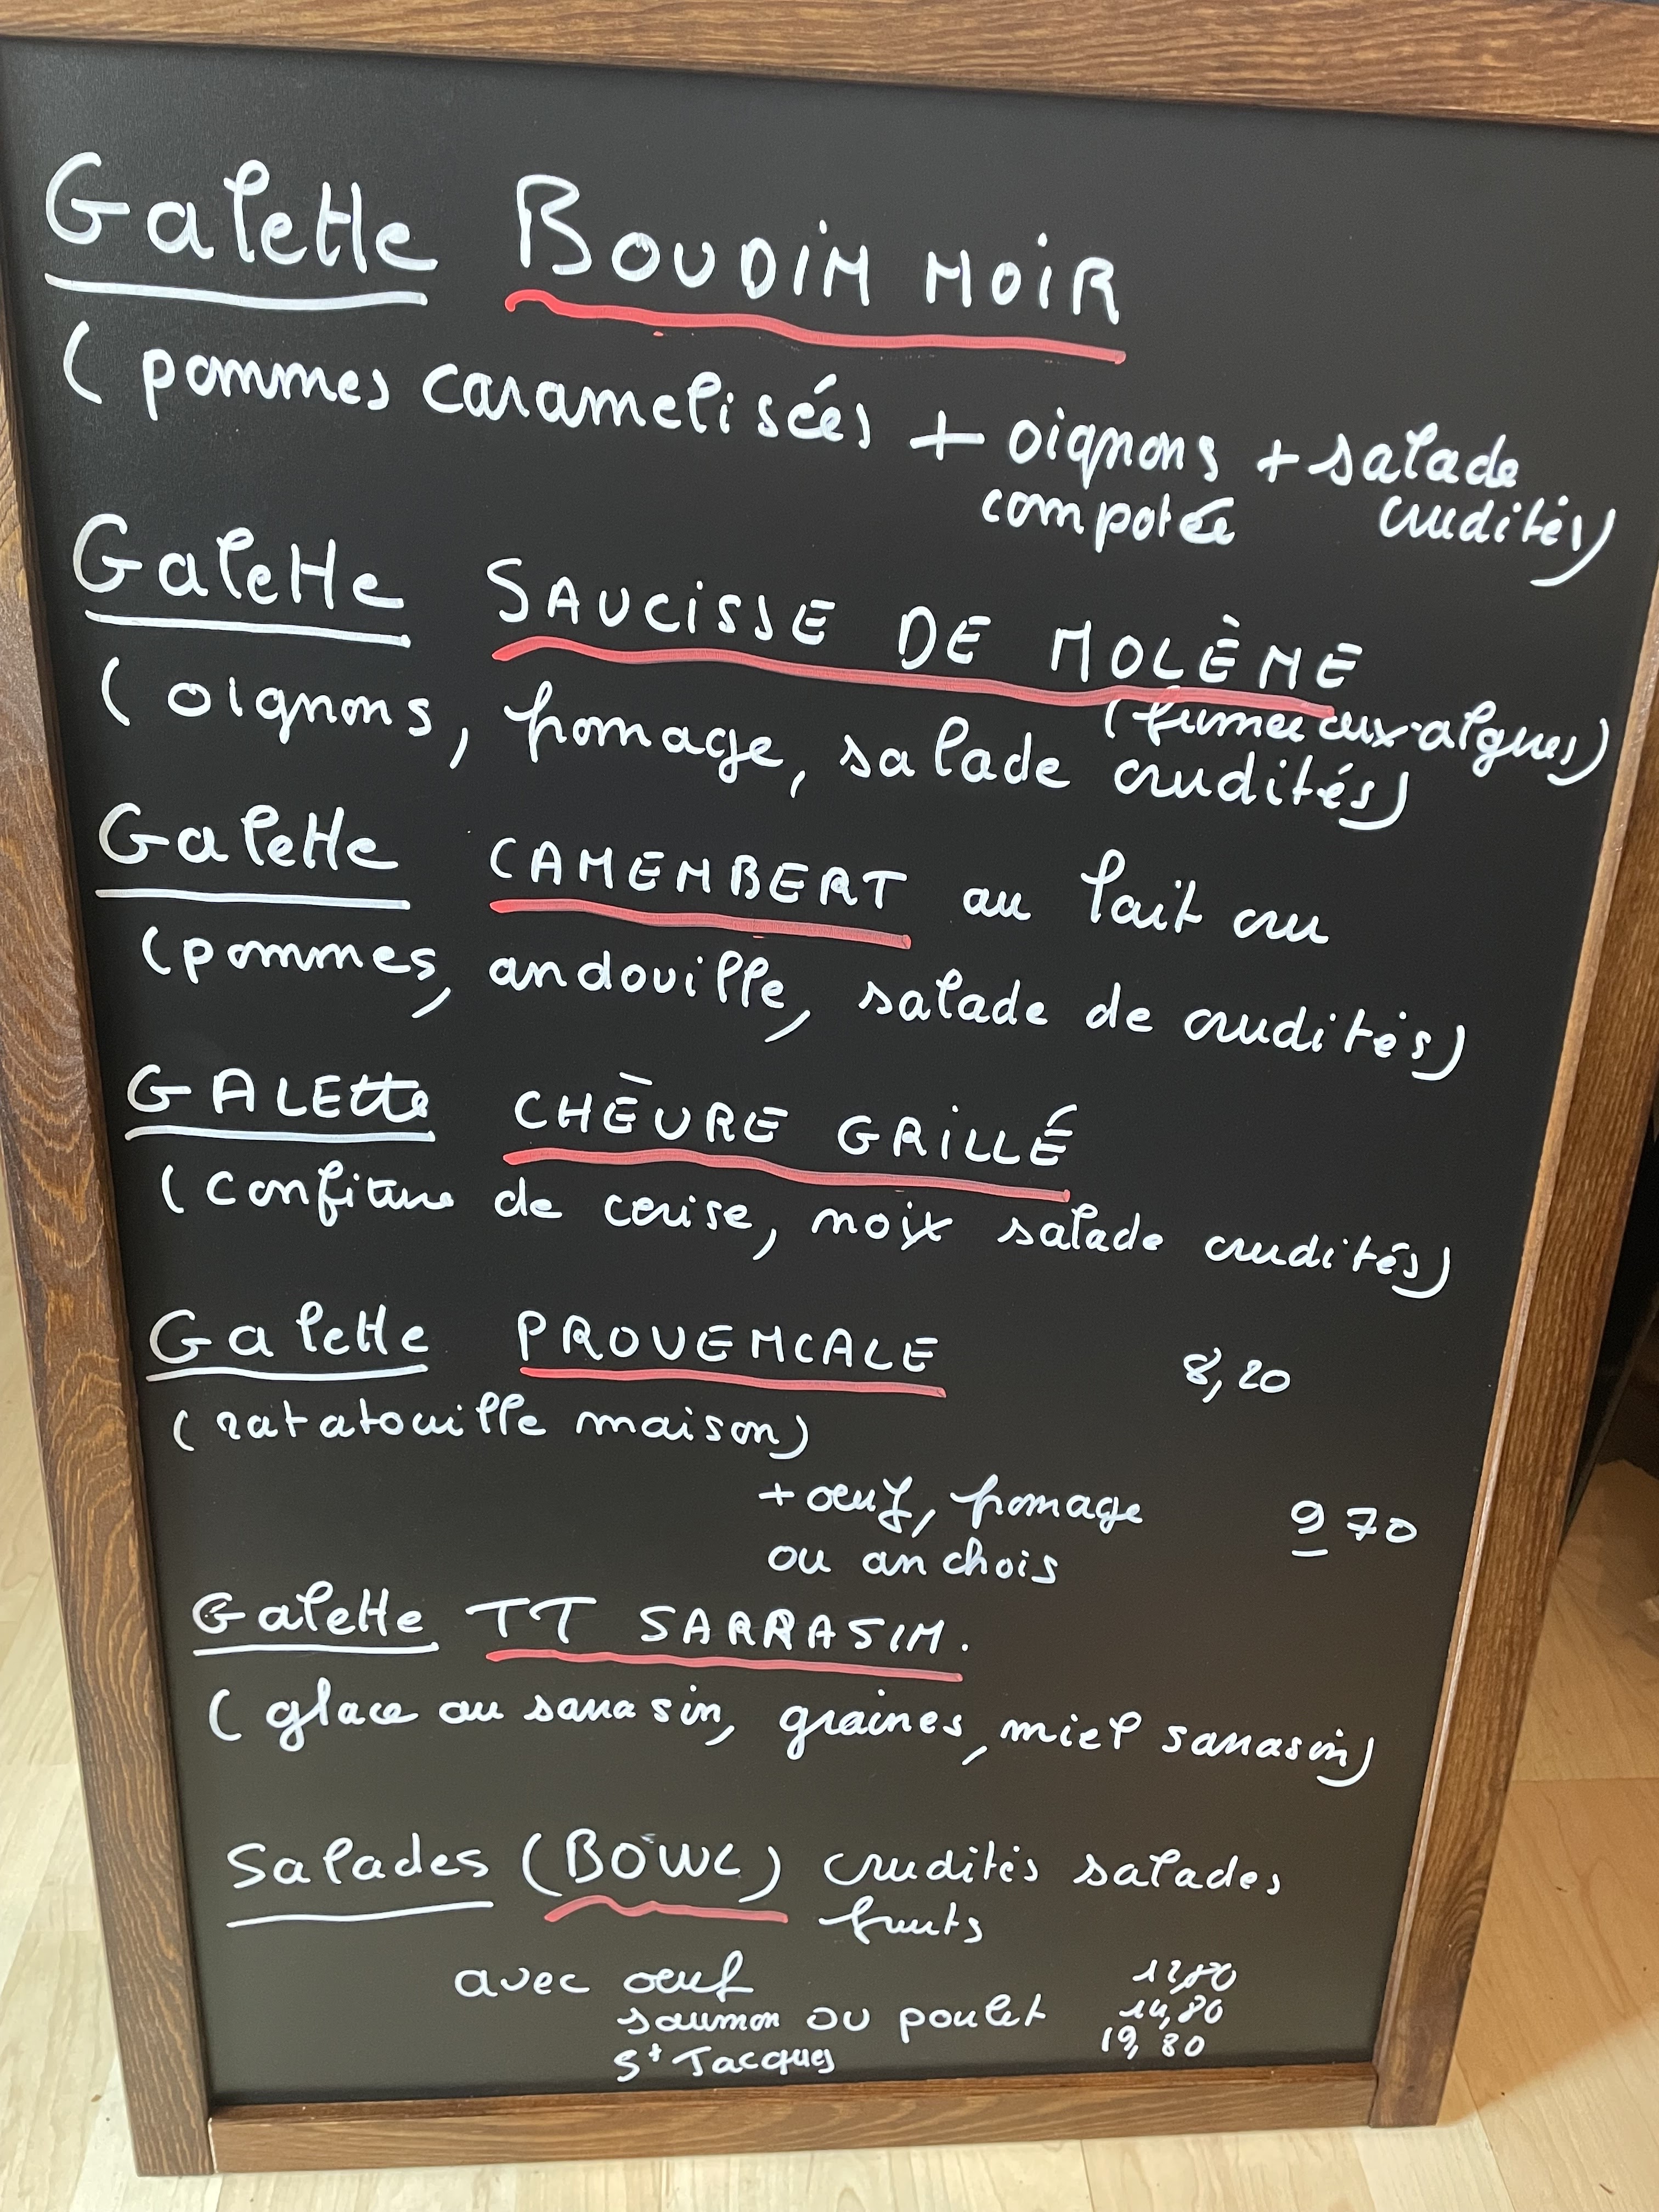 Galette BOUDIN NOIR
(pommes caramelisées + oignons + salade
compotée crudités)
Galette SAUCISSE DE MOLÈNE
(fumée aux algues)
(oignons, fromage, salade crudités)
Galette CAMEMBERT au lait cru
(pommes, andouille, salade de crudités)
GALEtte CHÈVRE GRILLÉ
(confiture de cerise, noix salade crudités)
Galette PROVENCALE 8,20
(ratatouille maison)
+ oeuf, fromage 9 70
ou anchois
Galette TT SARRASIN.
(glace au sarrasin, graines, miel sarrasin)
Salades (BOWL) crudités salades
fruits
avec oeuf
saumon ou poulet 14,80
St Jacques 19,80